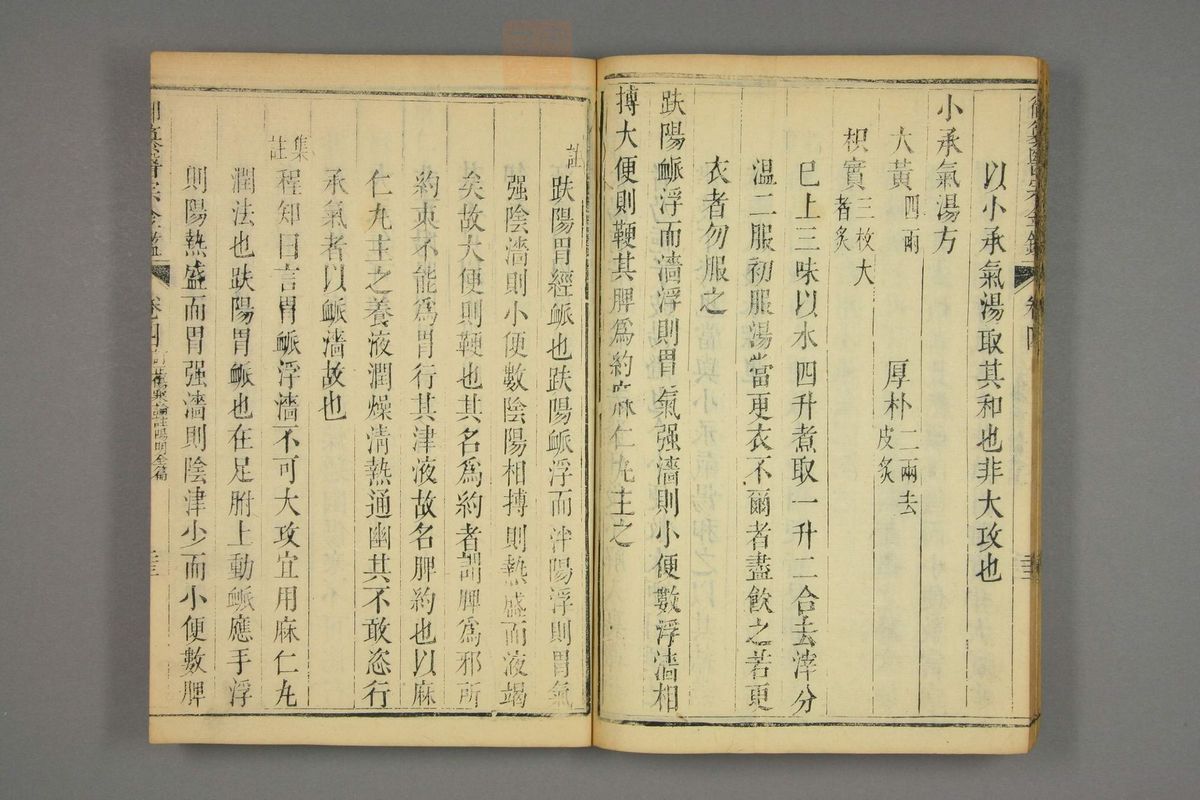 以小承氣湯取其和也非大攻也
小承氣湯方
大黃四兩 厚朴二兩去皮炙
枳實三枚大者炙
已上三味以水四升煮取一升二合去滓分
温二服初服湯當更衣不爾者盡飲之若更
衣者勿服之
趺陽脈浮而濇浮則胃氣强濇則小便數浮濇相
搏大便則鞕其脾為約麻仁丸主之
註趺陽胃經脈也趺陽脈浮而泮陽浮則胃氣
强陰濇則小便數陰陽相搏則熱盛而液竭
矣故大便則鞕也其名為約者謂脾為邪所
約束不能為胃行其津液故名脾約也以麻
仁丸主之養液潤燥清熱通幽其不敢恣行
承氣者以脈濇故也
集註程知曰言胃脈浮濇不可大攻宜用麻仁丸
潤法也趺陽胃脈也在足胕上動脈應手浮
則陽熱盛而胃强濇則陰津少而小便數脾
卷四